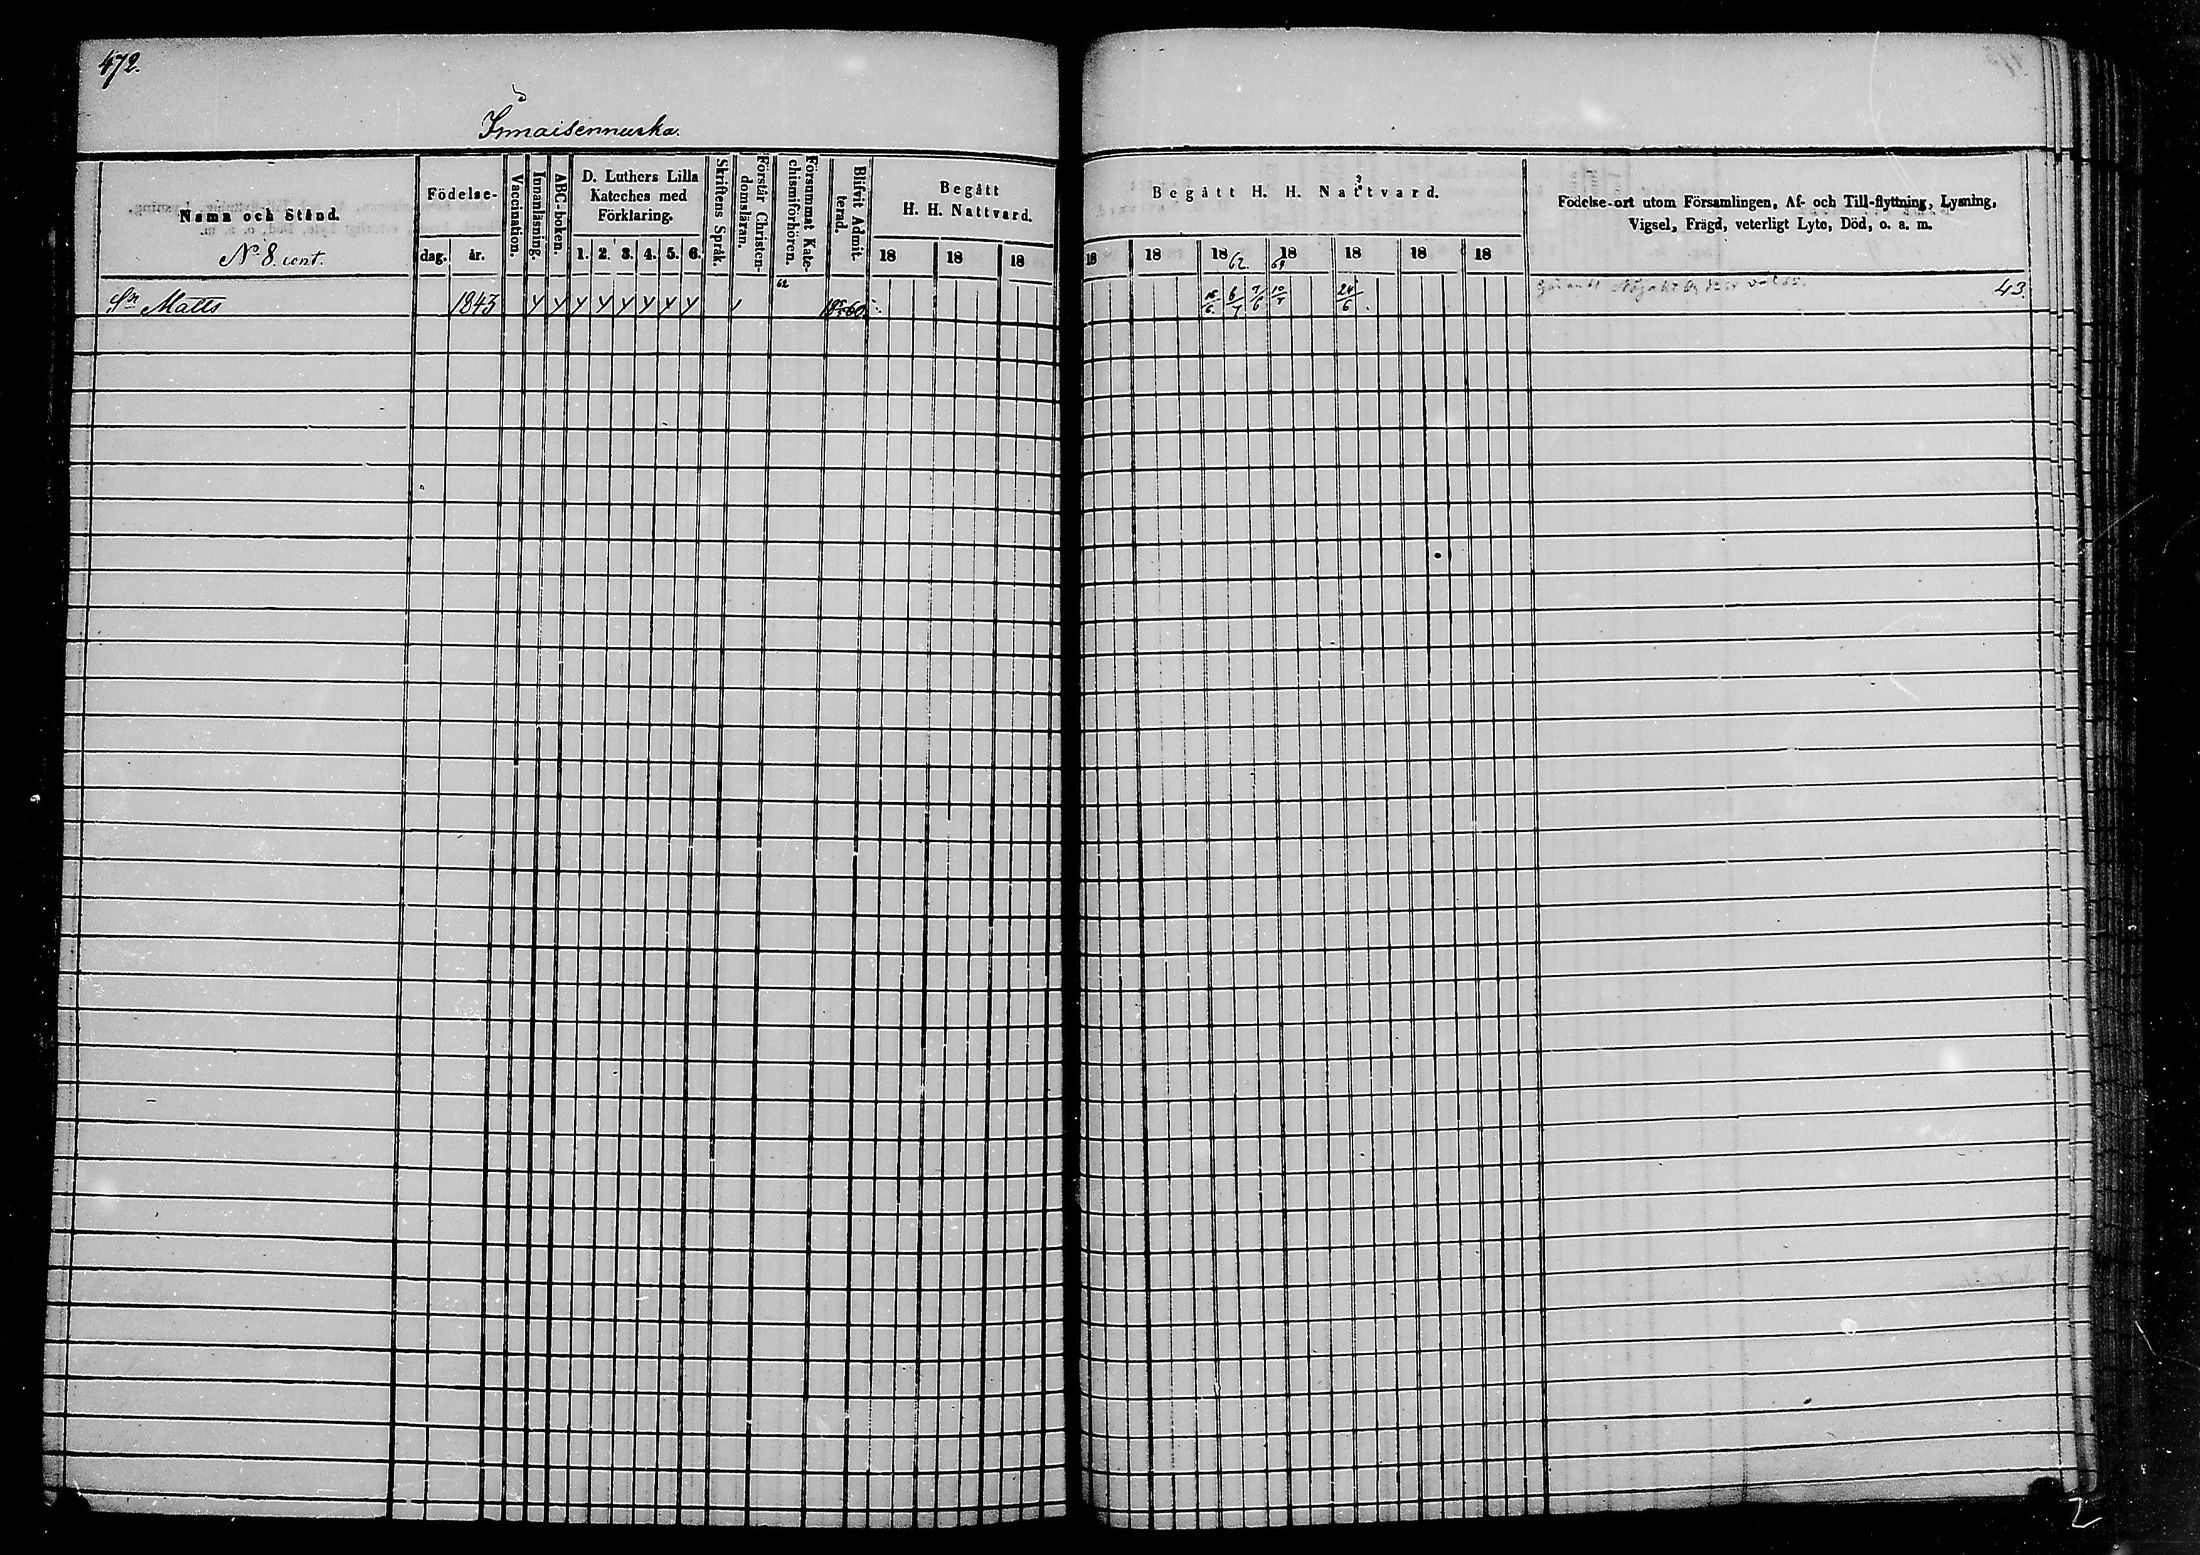 472.
Immaisenmuska.
Namn och Stånd.
No 8. cont.
Födelse-
dag.
år.
Vaccination.
Innanläsning.
ABC-boken.
D. Luthers Lilla
Kateches med
Förklaring.
1. 2. 3. 4. 5. 6.
Skriftens Språk.
Förstår Christen-
domsläran.
Försummat Kate-
chismiförhören.
62
Blifvit Admit-
terad.
Begått
H. H. Nattvard.
18 18 18
Begått H. H. Nattvard.
18 18 18 62. 18 18 18 18
Födelse-ort utom Församlingen, Af- och Till-flyttning, Lysning,
Vigsel, Frägd, veterligt Lyte, Död, o. a. m.
Sn Matts 1843 24/6 43.
2